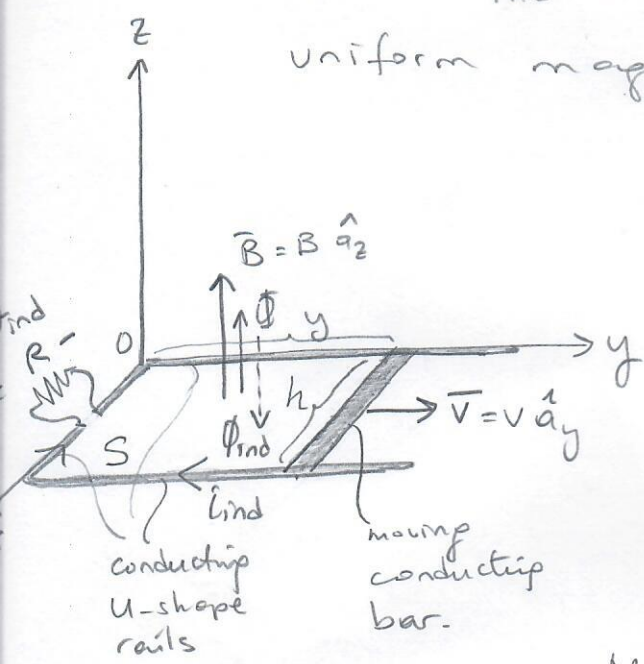 z
uniform mag
B̄ = B â_z
Φ
y
ind
R
O
y
h
V̄ = v â_y
Φind
S
iind
conducting
U-shape
rails
moving
conducting
bar.